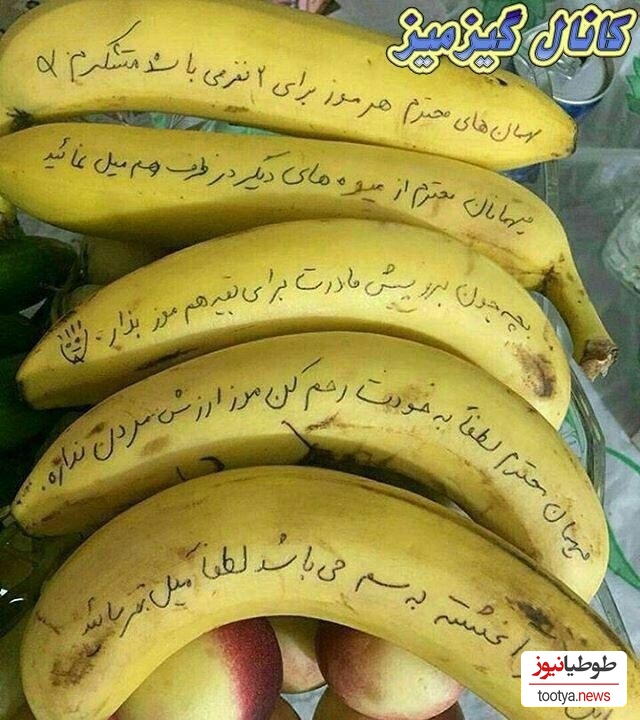 کانال گیزمیز
مهمان‌های محترم هر موز برای ۲ نفر می باشد متشکرم
میهمانان محترم از میوه های دیگر در ظرف هم میل نمائید
بچه جون برو پیش مادرت برای بقیه هم موز بذار.
میهمان محترم لطفاً به خودت رحم کن موز ارزش مردن نداره.
آغشته به سم می باشد لطفاً میل نفرمائید
طوطیانیوز
tootya.news